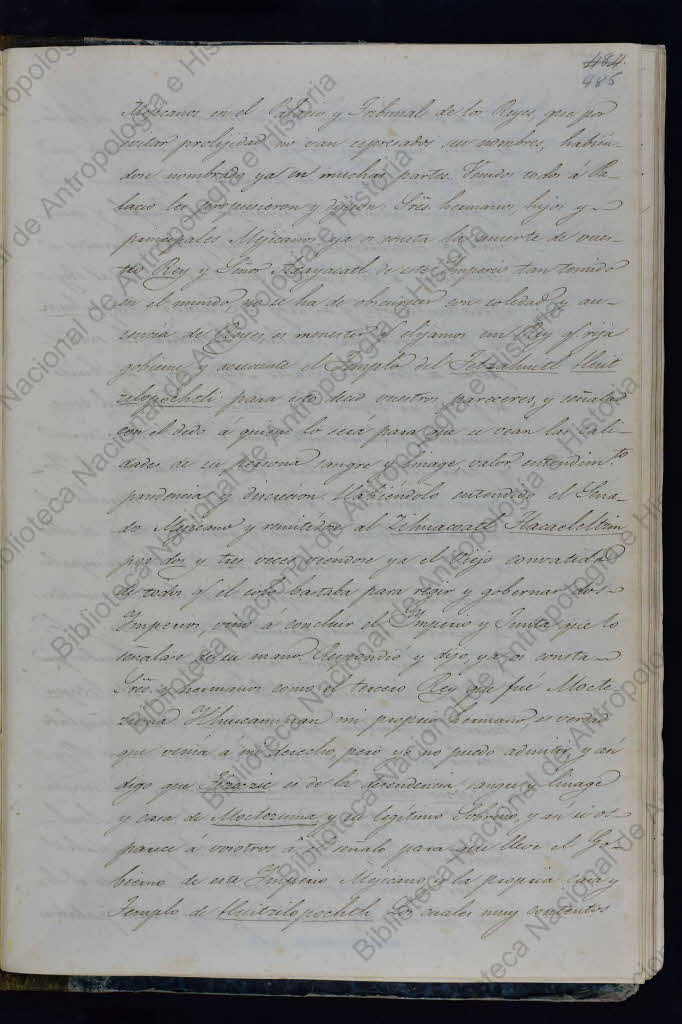 484.
485
Mejicanos en el Palacio y Tribunal de los Reyes, que por
evitar prolijidad no van expresados sus nombres, habien-
dose nombrado ya en muchas partes. Venidos todos á Pa-
lacio les propusieron y dijeron: Sres. hermanos, hijos y
principales Mejicanos, ya os consta la muerte de vues-
tro Rey y Señor Axayacatl de este Imperio tan temido
en el mundo, no se ha de obscurecer con soledad y au-
sencia de Reyes, es menester q. elijamos un Rey q. rija
gobierne y acreciente el Templo del Tetzahuitl Huit
zilopochtli: para esto dad vuestros pareceres, y señalad
con el dedo á quien lo será para que se vean las cali-
dades de su persona, sangre y linage, valor, entendimto.
prudencia y discrecion. Habiéndolo entendido el Sena-
do Mejicano y remitídose al Zihuacoatl Tlacaeleltzin
por dos y tres veces, viéndose ya el Viejo
de todos q. el solo bastaba para regir y gobernar dos
Imperios, vino á concluir el Imperio y Junta que lo
señalase de su mano. Respondió y dijo, ya os consta
Sres. y hermanos como el tercero Rey que fué Moc-
tezuma Ilhuicaminan mi propio hermano, es verdad
que venía á mi derecho, pero yo no puedo admitir, y así
digo que Tizozic es de la dependencia, sangre y linage
y casa de Moctezuma y su legítimo Sobrino, y así si os
parece á vosotros á él señalo para que lleve el Go-
bierno de este Imperio Mejicano y la propia casa y
Templo de Huitzilopochtli. Los cuales muy contentos
Biblioteca Nacional de Antropología e Historia